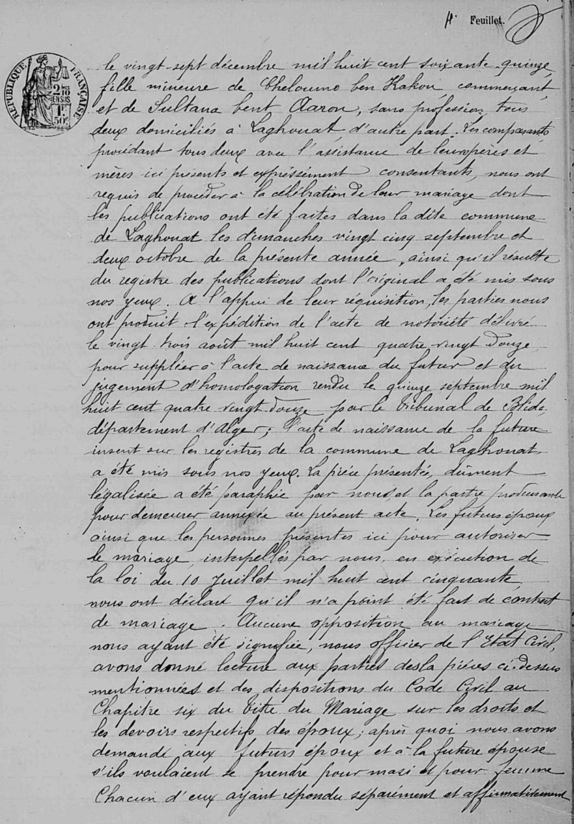 4e Feuillet.
RÉPUBLIQUE FRANÇAISE
le vingt-sept décembre mil huit cent soixante quinze
fille mineure de Cheloumo ben Hakou, commerçant
et de Sultana bent Aaron, sans profession, tous
deux domiciliés à Laghouat d'autre part. Les comparants
procédant tous deux avec l'assistance de leurs pères et
mères ici présents et expressément consentants, nous ont
requis de procéder à la célébration de leur mariage dont
les publications ont été faites dans la dite commune
de Laghouat les dimanches vingt cinq septembre et
deux octobre de la présente année, ainsi qu'il résulte
du registre des publications dont l'original a été mis sous
nos yeux. A l'appui de leur réquisition, les parties nous
ont produit l'expédition de l'acte de notoriété délivré
le vingt trois août mil huit cent quatre vingt douze
pour suppléer à l'acte de naissance du futur et du
jugement d'homologation rendu le quinze septembre mil
huit cent quatre vingt douze par le tribunal de Blida
département d'Alger; l'acte de naissance de la future
inscrit sur les registres de la commune de Laghouat
a été mis sous nos yeux. La pièce présentée, dûment
légalisée a été paraphée par nous et la partie produisante
pour demeurer annexée au présent acte. Les futurs époux
ainsi que les personnes présentes ici pour autoriser
le mariage, interpellés par nous, en exécution de
la loi du 10 Juillet mil huit cent cinquante
nous ont déclaré qu'il n'a point été fait de contrat
de mariage. Aucune opposition au mariage
nous ayant été signifiée, nous officier de l'Etat Civil,
avons donné lecture aux parties des pièces ci-dessus
mentionnées et des dispositions du Code Civil au
Chapitre six du titre du Mariage sur les droits et
les devoirs respectifs des époux; après quoi nous avons
demandé aux futurs époux et à la future épouse
s'ils voulaient se prendre pour mari et pour femme
Chacun d'eux ayant répondu séparément et affirmativement